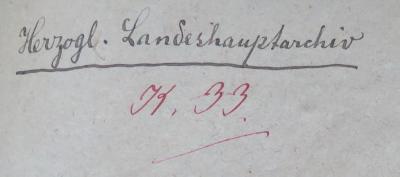 Herzogl. Landeshauptarchiv
K. 33.